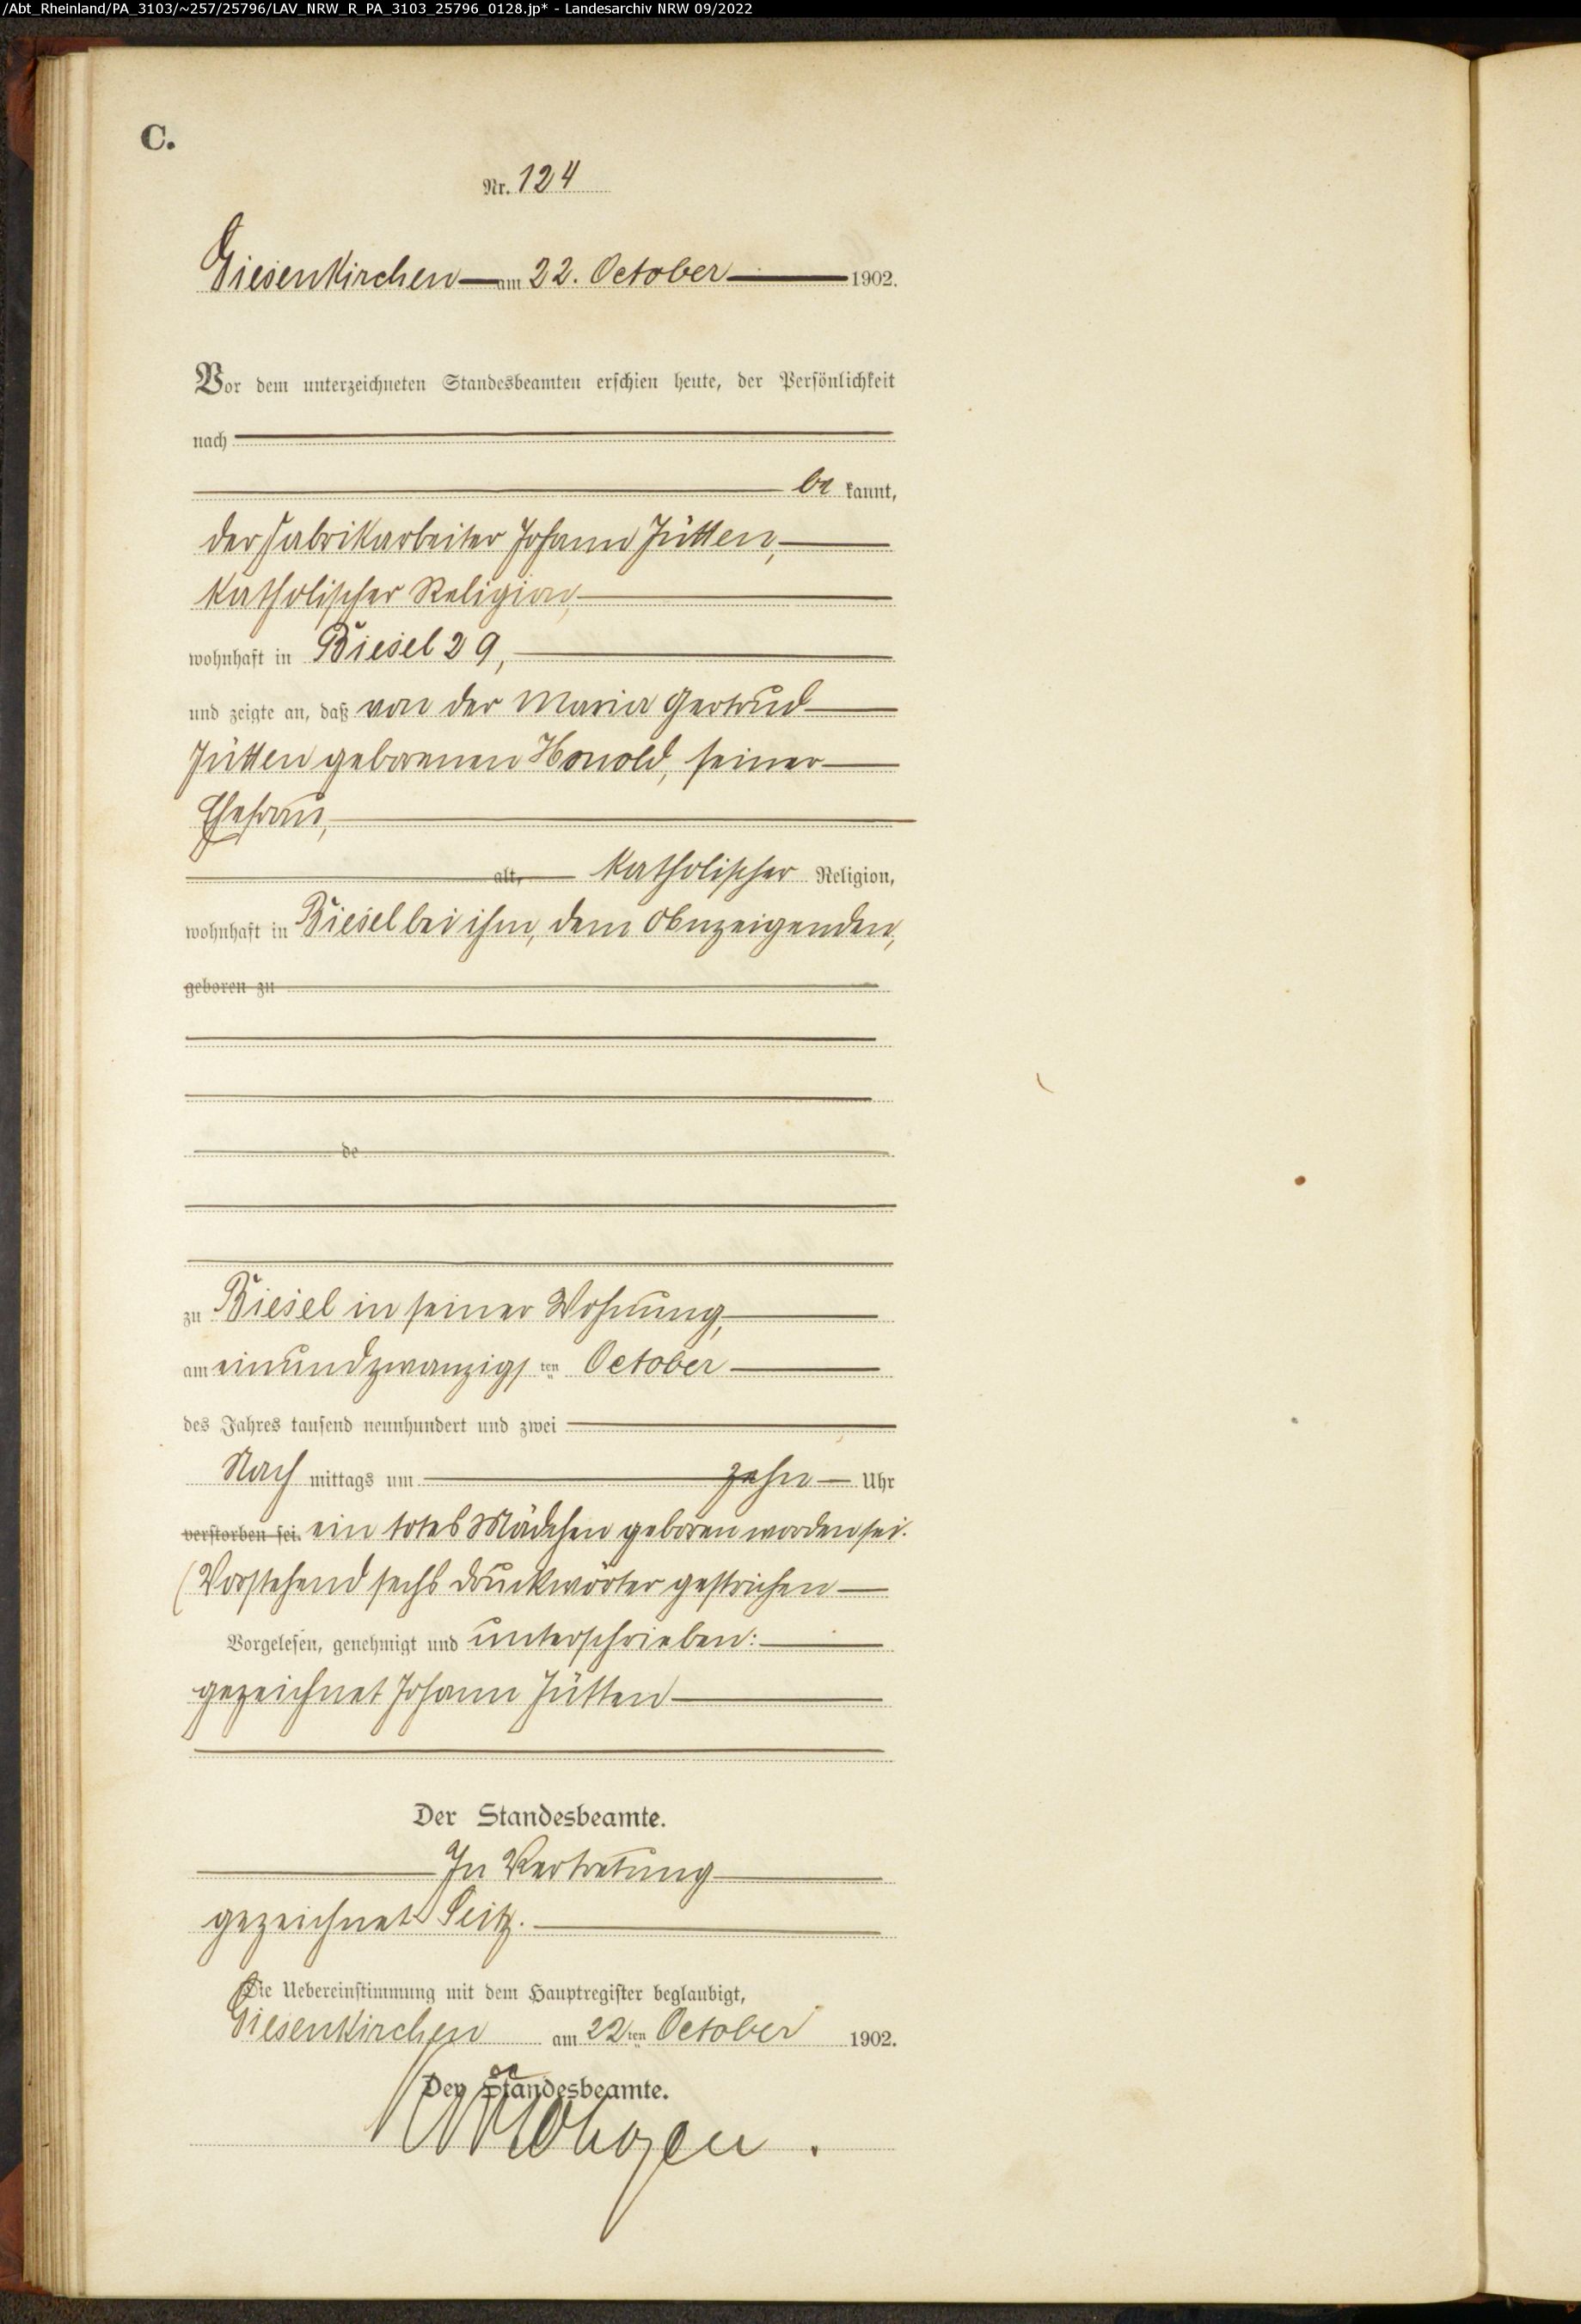 /Abt_Rheinland/PA_3103/~257/25796/LAV_NRW_R_PA_3103_25796_0128.jp* - Landesarchiv NRW 09/2022
C.
Nr. 124
Giesenkirchen am 22. October 1902.
Vor dem unterzeichneten Standesbeamten erschien heute, der Persönlichkeit
nach
be kannt,
der Fabrikarbeiter Johann Jütten,
katholischer Religion,
wohnhaft in Biesel 29,
und zeigte an, daß von der Maria Gertrud
Jütten geborenen Honold, seiner
Ehefrau,
alt, katholischer Religion,
wohnhaft in Biesel bei ihm, dem Anzeigenden,
geboren zu
de
zu Biesel in seiner Wohnung,
am einundzwanzigsten October
des Jahres tausend neunhundert und zwei
Nach mittags um zehn Uhr
verstorben sei. ein totes Mädchen geboren worden sei.
(Vorstehend sechs Druckwörter gestrichen
Vorgelesen, genehmigt und unterschrieben:
gezeichnet Johann Jütten
Der Standesbeamte.
In Vertretung
gezeichnet Seitz.
Die Uebereinstimmung mit dem Hauptregister beglaubigt,
Giesenkirchen am 22ten October 1902.
Der Standesbeamte.